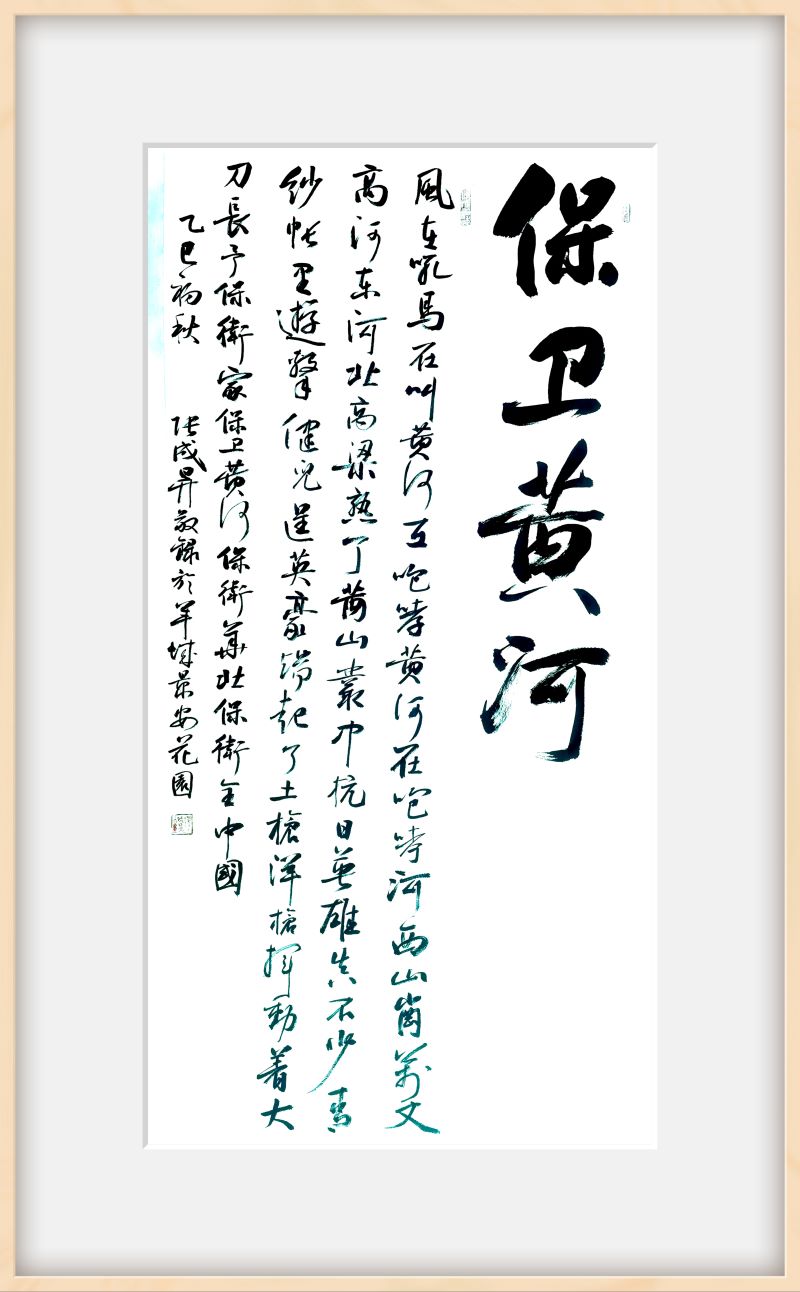 保卫黄河
風在吼馬在叫黄河互咆哮黄河在咆哮河西山崗萬丈
高河东河北高梁熟了萬山叢中抗日英雄真不少青
紗帐里遊擊健兒逞英豪端起了土槍洋槍揮動着大
刀長予保衛家保卫黄河保衛華北保衛全中國
乙巳初秋 张成昇敬録於羊城景安花園